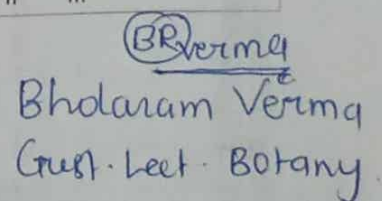 BRverma
Bholaram Verma
Gust. Lect. Botany